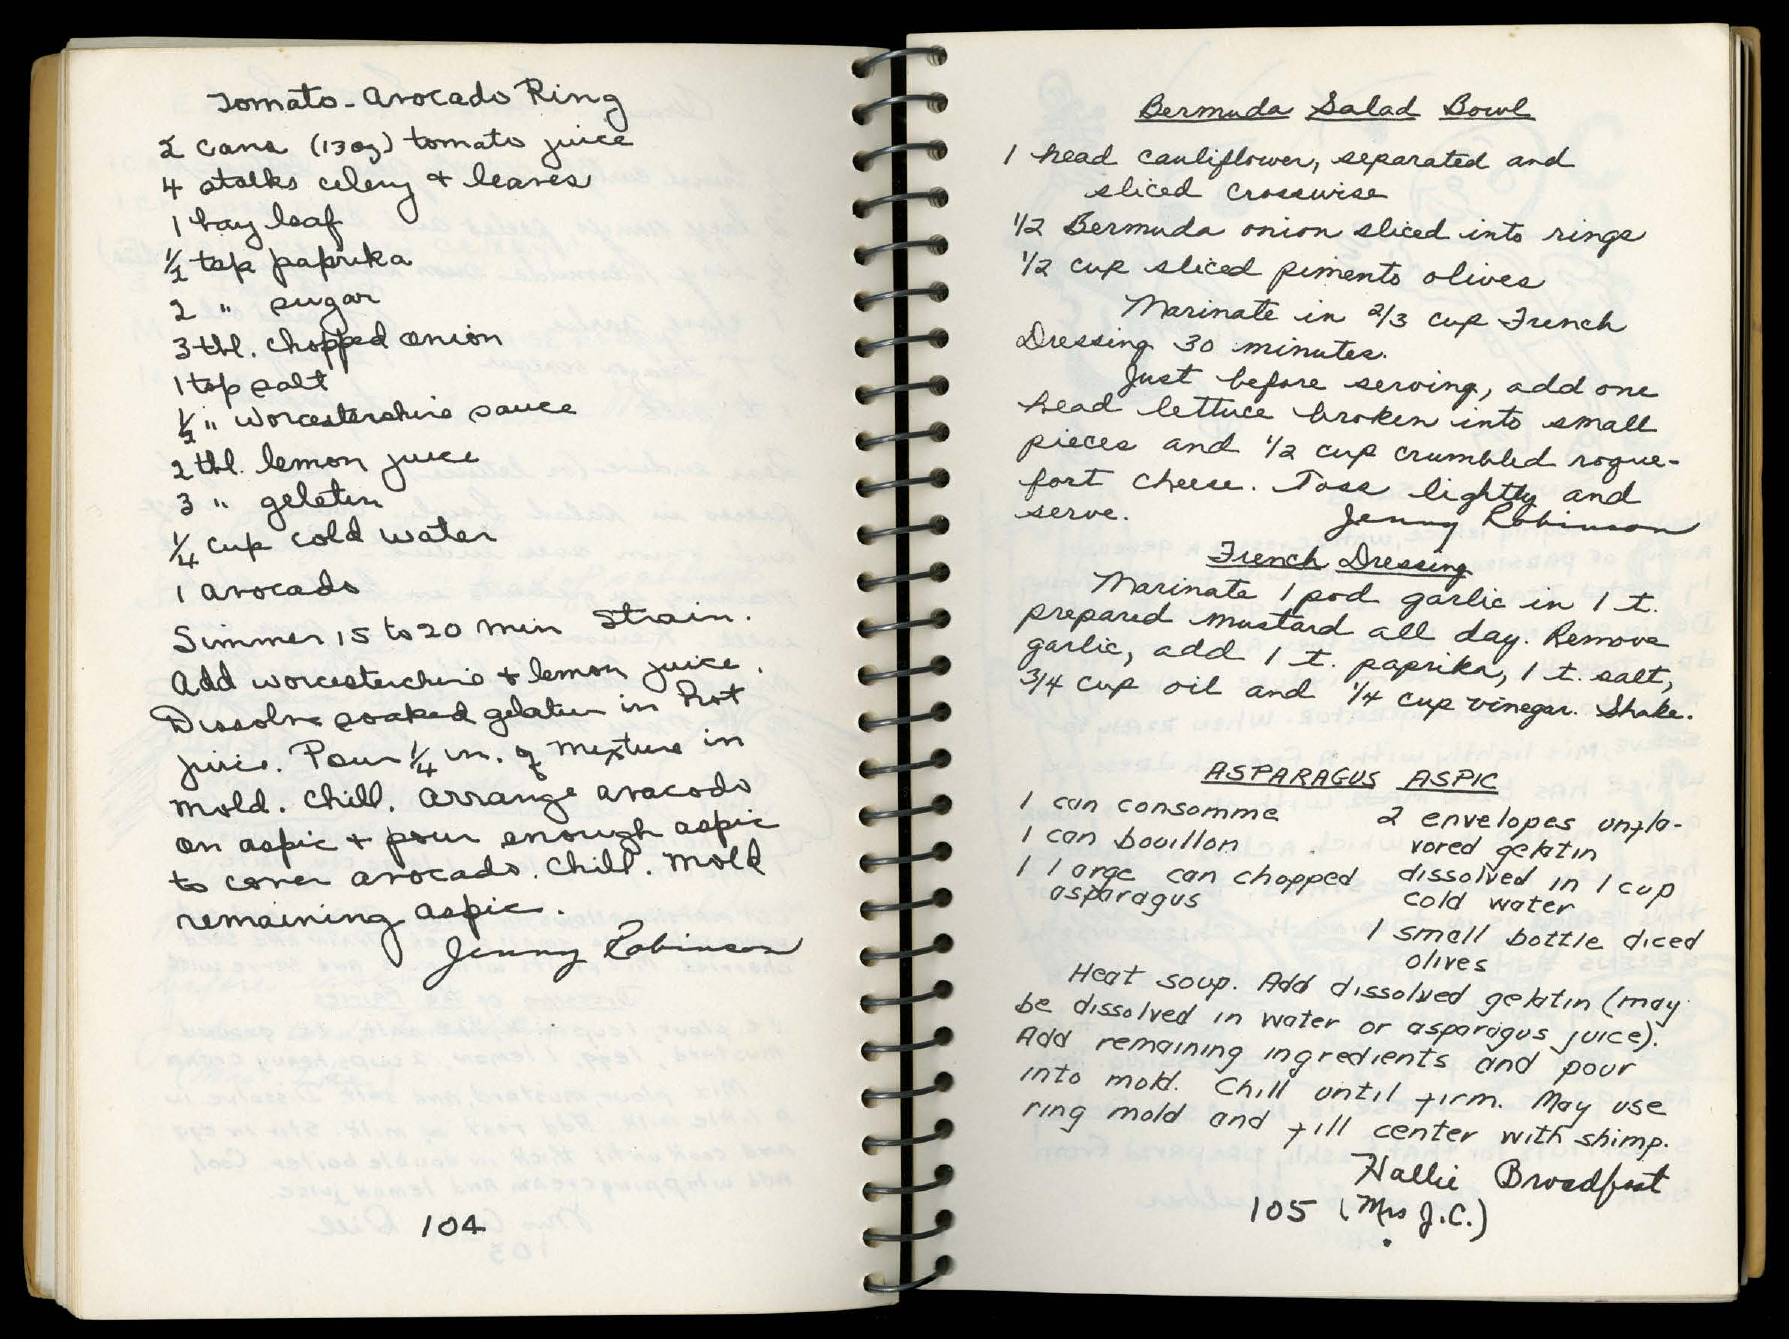 Tomato-Avocado Ring
2 cans (13 oz) tomato juice
4 stalks celery & leaves
1 bay leaf
1/2 tsp paprika
2 " sugar
3 tbl. chopped onion
1 tsp salt
1/2 " Worcestershire sauce
2 tbl. lemon juice
3 " gelatin
1/4 cup cold water
1 avocado
Simmer 15 to 20 min Strain.
Add worcestershire & lemon juice.
Dissolve soaked gelatin in hot
juice. Pour 1/4 in. of mixture in
mold. Chill. Arrange avacado
on aspic & pour enough aspic
to cover avocado. Chill. Mold
remaining aspic.
Jenny Robinson
104
Bermuda Salad Bowl
1 head cauliflower, separated and
sliced crosswise
1/2 Bermuda onion sliced into rings
1/2 cup sliced pimento olives
Marinate in 2/3 cup French
Dressing 30 minutes.
Just before serving, add one
head lettuce broken into small
pieces and 1/2 cup crumbled rogue-
fort cheese. Toss lightly and
serve. Jenny Robinson
French Dressing
Marinate 1 pod garlic in 1 t.
prepared mustard all day. Remove
garlic, add 1 t. paprika, 1 t. salt,
3/4 cup oil and 1/4 cup vinegar. Shake.
ASPARAGUS ASPIC
1 can consomme
1 can bouillon
1 large can chopped
asparagus
2 envelopes unfla-
vored gelatin
dissolved in 1 cup
cold water
1 small bottle diced
olives
Heat soup. Add dissolved gelatin (may
be dissolved in water or asparagus juice).
Add remaining ingredients and pour
into mold. Chill until firm. May use
ring mold and fill center with shimp.
Hallie Broadfoot
105 (Mrs J.C.)